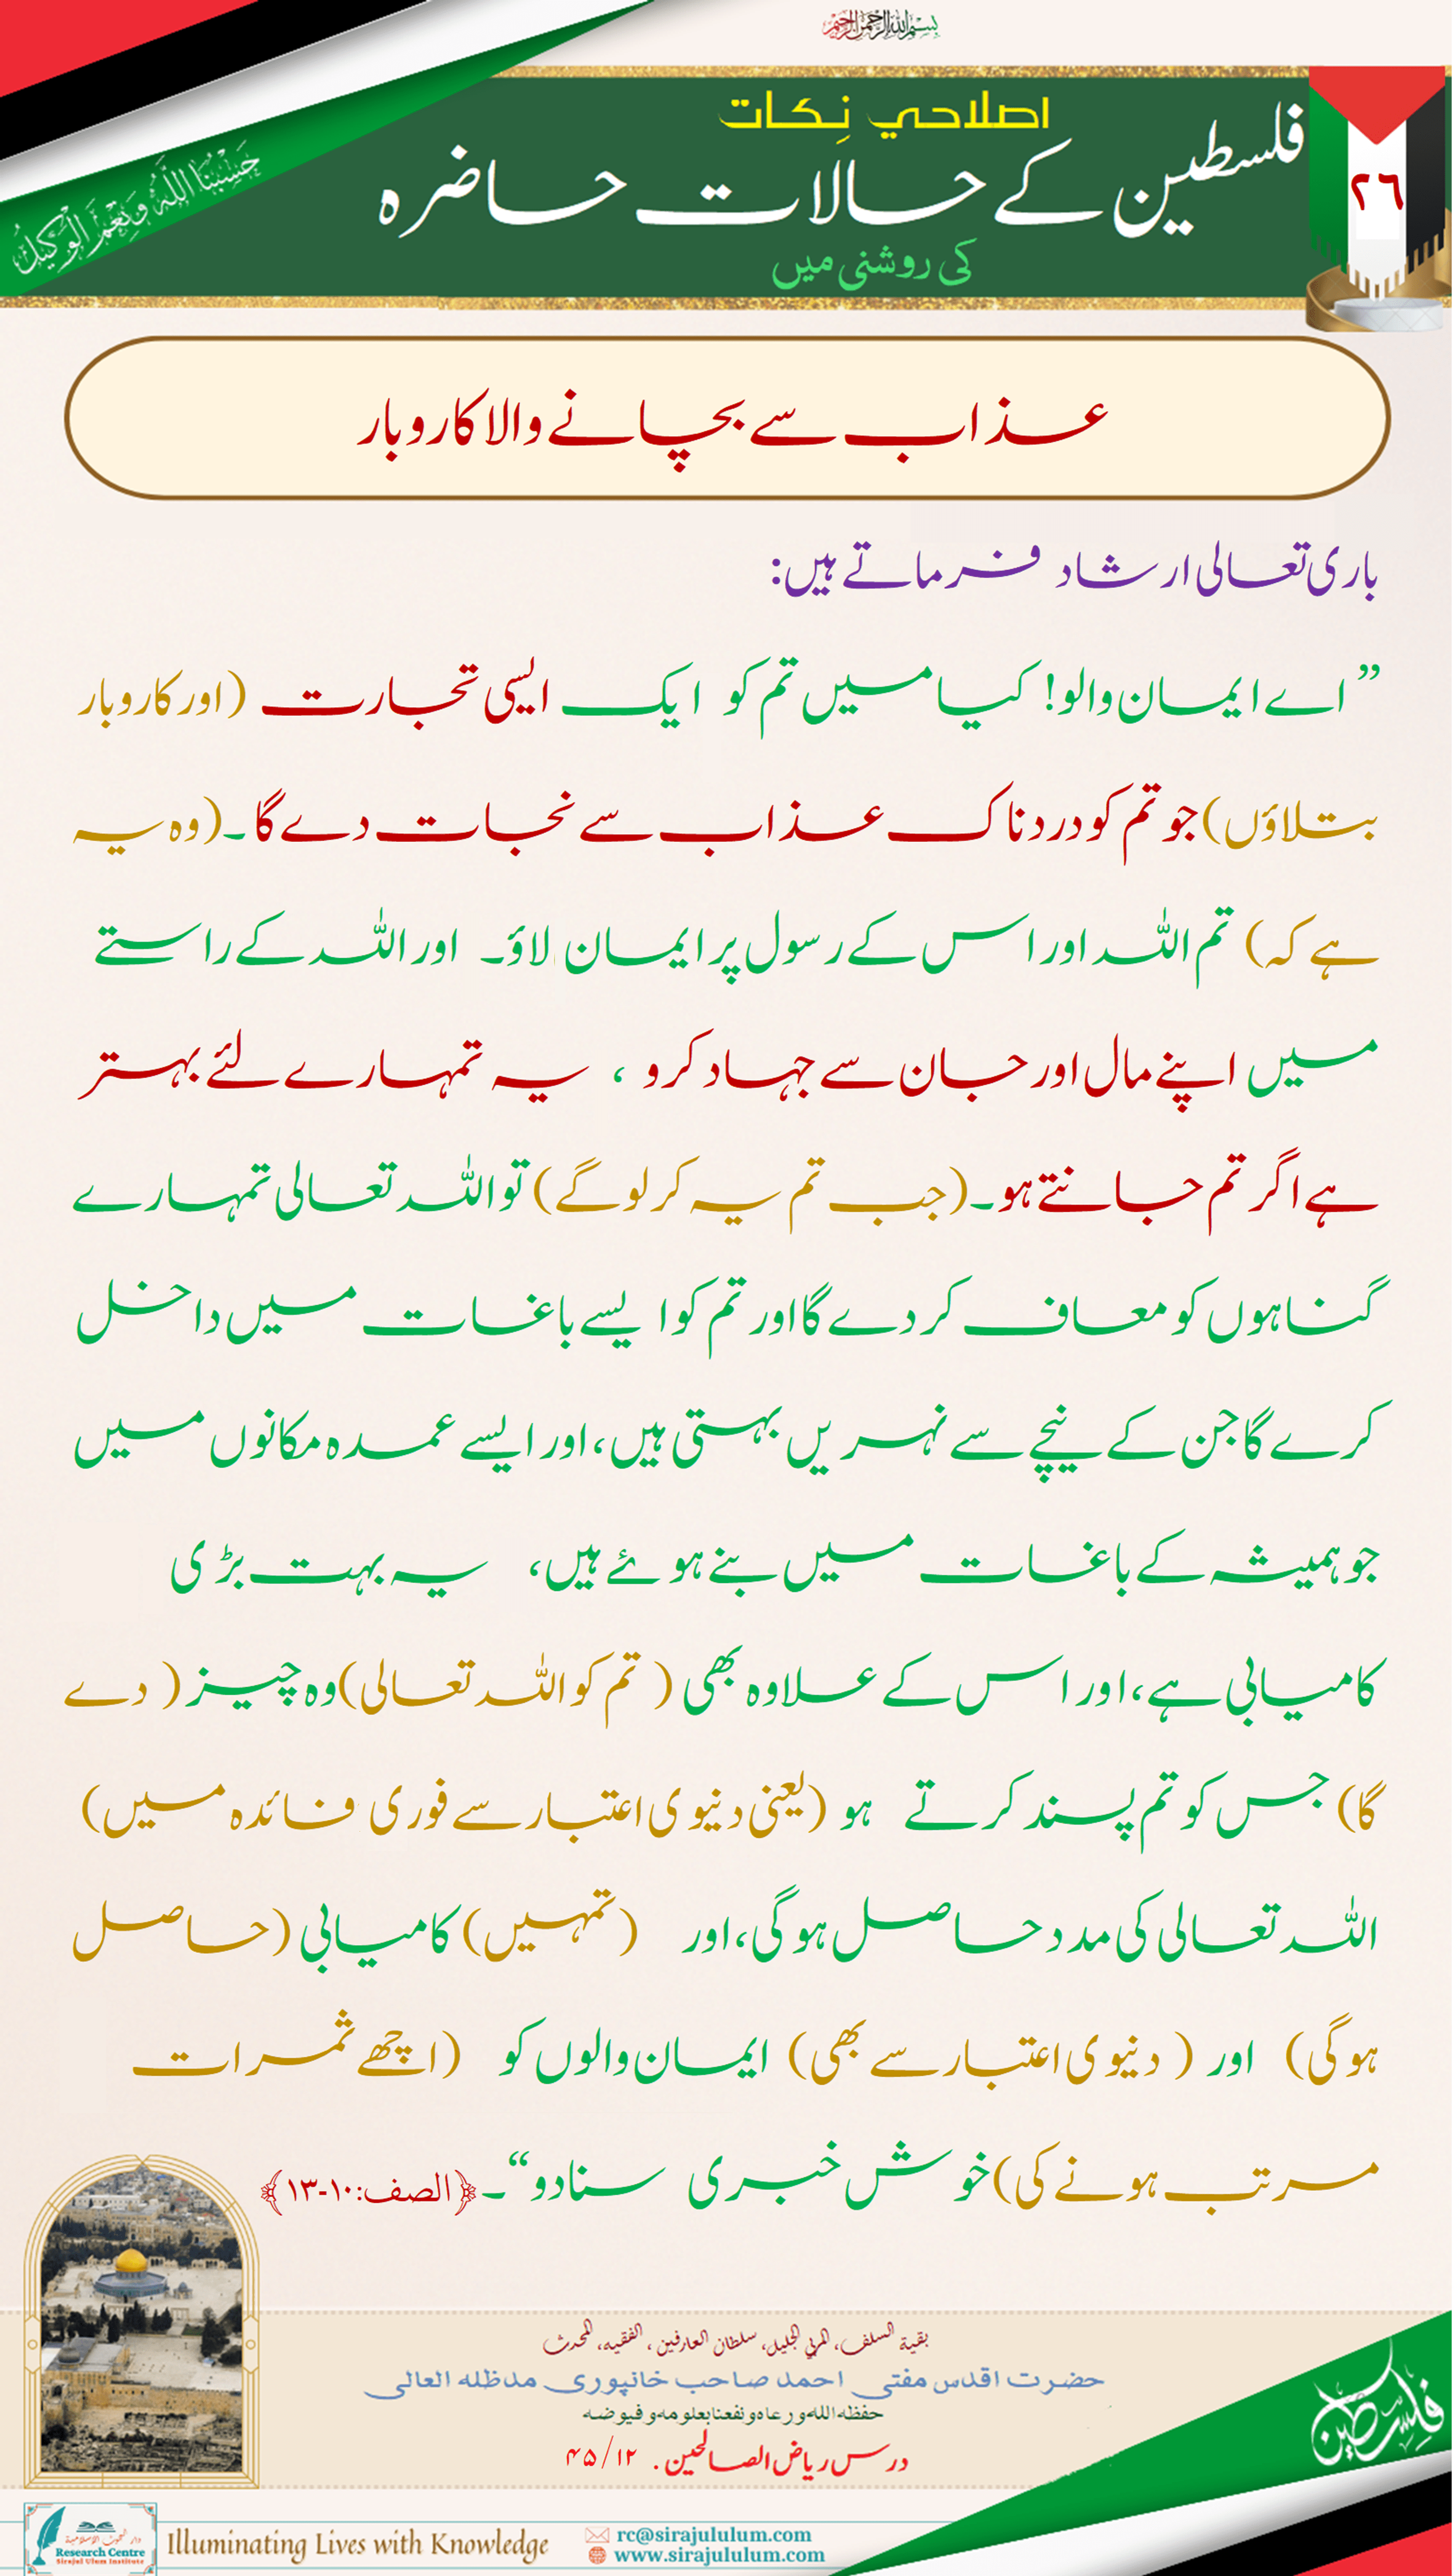 بسم الله الرحمن الرحيم
٢٦
اصلاحي نِكات
فلسطین کے حالات حاضرہ
کی روشنی میں
حَسْبُنَا اللَّهُ وَنِعْمَ الْوَكِيْلُ
عذاب سے بچانے والا کاروبار
باری تعالی ارشاد فرماتے ہیں:
”اے ایمان والو! کیا میں تم کو ایک ایسی تجارت (اور کاروبار
بتلاؤں) جو تم کو دردناک عذاب سے نجات دے گا۔ (وہ یہ
ہے کہ) تم اللہ اور اس کے رسول پر ایمان لاؤ۔ اور اللہ کے راستے
میں اپنے مال اور جان سے جہاد کرو ، یہ تمہارے لئے بہتر
ہے اگر تم جانتے ہو۔ (جب تم یہ کر لوگے) تو اللہ تعالی تمہارے
گناہوں کو معاف کر دے گا اور تم کو ایسے باغات میں داخل
کرے گا جن کے نیچے سے نہریں بہتی ہیں، اور ایسے عمدہ مکانوں میں
جو ہمیشہ کے باغات میں بنے ہوئے ہیں، یہ بہت بڑی
کامیابی ہے، اور اس کے علاوہ بھی (تم کو اللہ تعالی) وہ چیز (دے
گا) جس کو تم پسند کرتے ہو (یعنی دنیوی اعتبار سے فوری فائدہ میں)
اللہ تعالی کی مدد حاصل ہوگی، اور (تمہیں) کامیابی (حاصل
ہوگی) اور (دنیوی اعتبار سے بھی) ایمان والوں کو (اچھے ثمرات
مرتب ہونے کی) خوش خبری سنادو“۔ ﴿الصف: ١٠-١٣﴾
بقية السلف، المربي الجليل، سلطان العارفين، الفقيه، المحدث
حضرت اقدس مفتی احمد صاحب خانپوری مدظلہ العالی
حفظه الله ورعاه ونفعنا بعلومه وفيوضه
درس ریاض الصالحین . ۴۵/۱۲
فلسطين
دار البحوث الإسلامية
Research Centre
Sirajul Ulum Institute
Illuminating Lives with Knowledge
rc@sirajululum.com
www.sirajululum.com